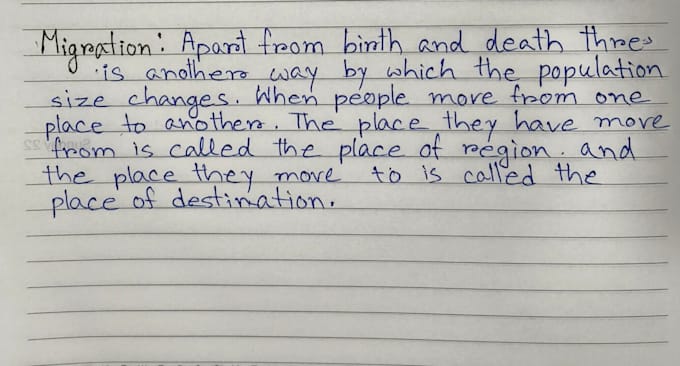 Migration: Apart from birth and death thres
is anothers way by which the population
size changes. When people move from one
place to another. The place they have move
from is called the place of region. and
the place they move to is called the
place of destination.